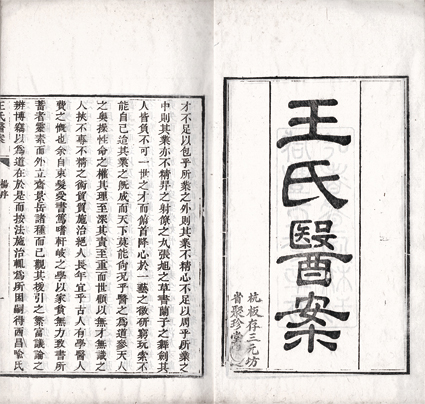 王氏醫案
杭板存三元坊
省聚珍堂
才不足以包乎所業之外則其業不精心不足以周乎所業之
中則其業亦不精羿之射僚之丸張旭之草書蘭子之舞劍其
人皆負不可一世之才而俯首降心於一藝之微研窮玩索不
能自已迨其業之旣成而天下莫能尙況乎醫之為道參天人
之奧操性命之權其理至深其責至重而世顧以無才無識之
人挾不專不精之術貿貿施治絕人長年宜乎古人有學醫人
費之慨也余自束髮愛書篤嗜軒岐之學以家貧無力致書所
蓄者靈素而外立齋景岳諸種而已觀其援引之繁富議論之
辨博竊以為道在於是而按法施治輒為所困嗣得西昌喻氏
王氏醫案 楊序